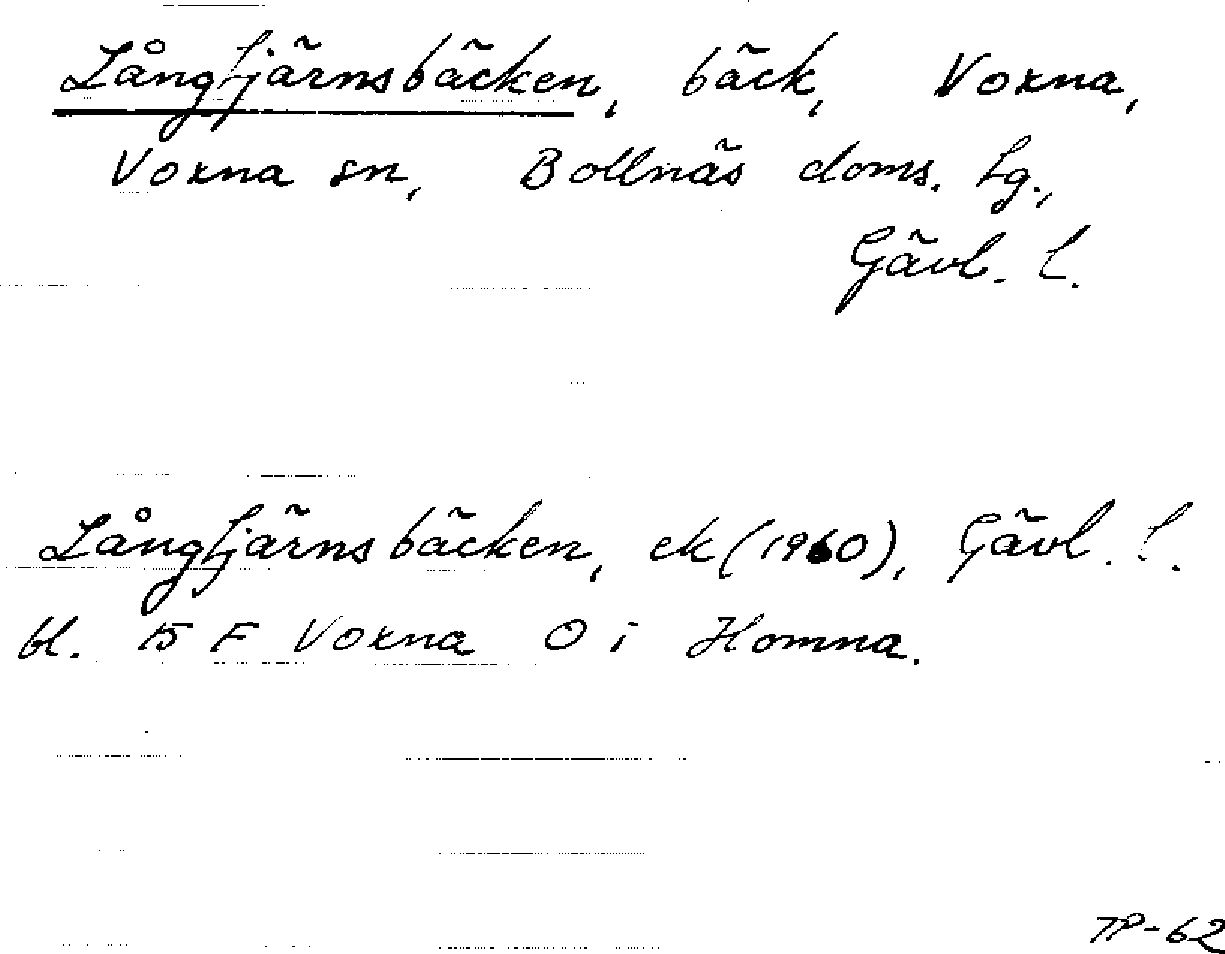 Långtjärnsbäcken, bäck, Voxna,
Voxna sn, Bollnäs doms. tg.,
Gävl. l.
Långtjärnsbäcken, ek (1960), Gävl. l.
bl. 15 F Voxna O i Homna.
TP-62